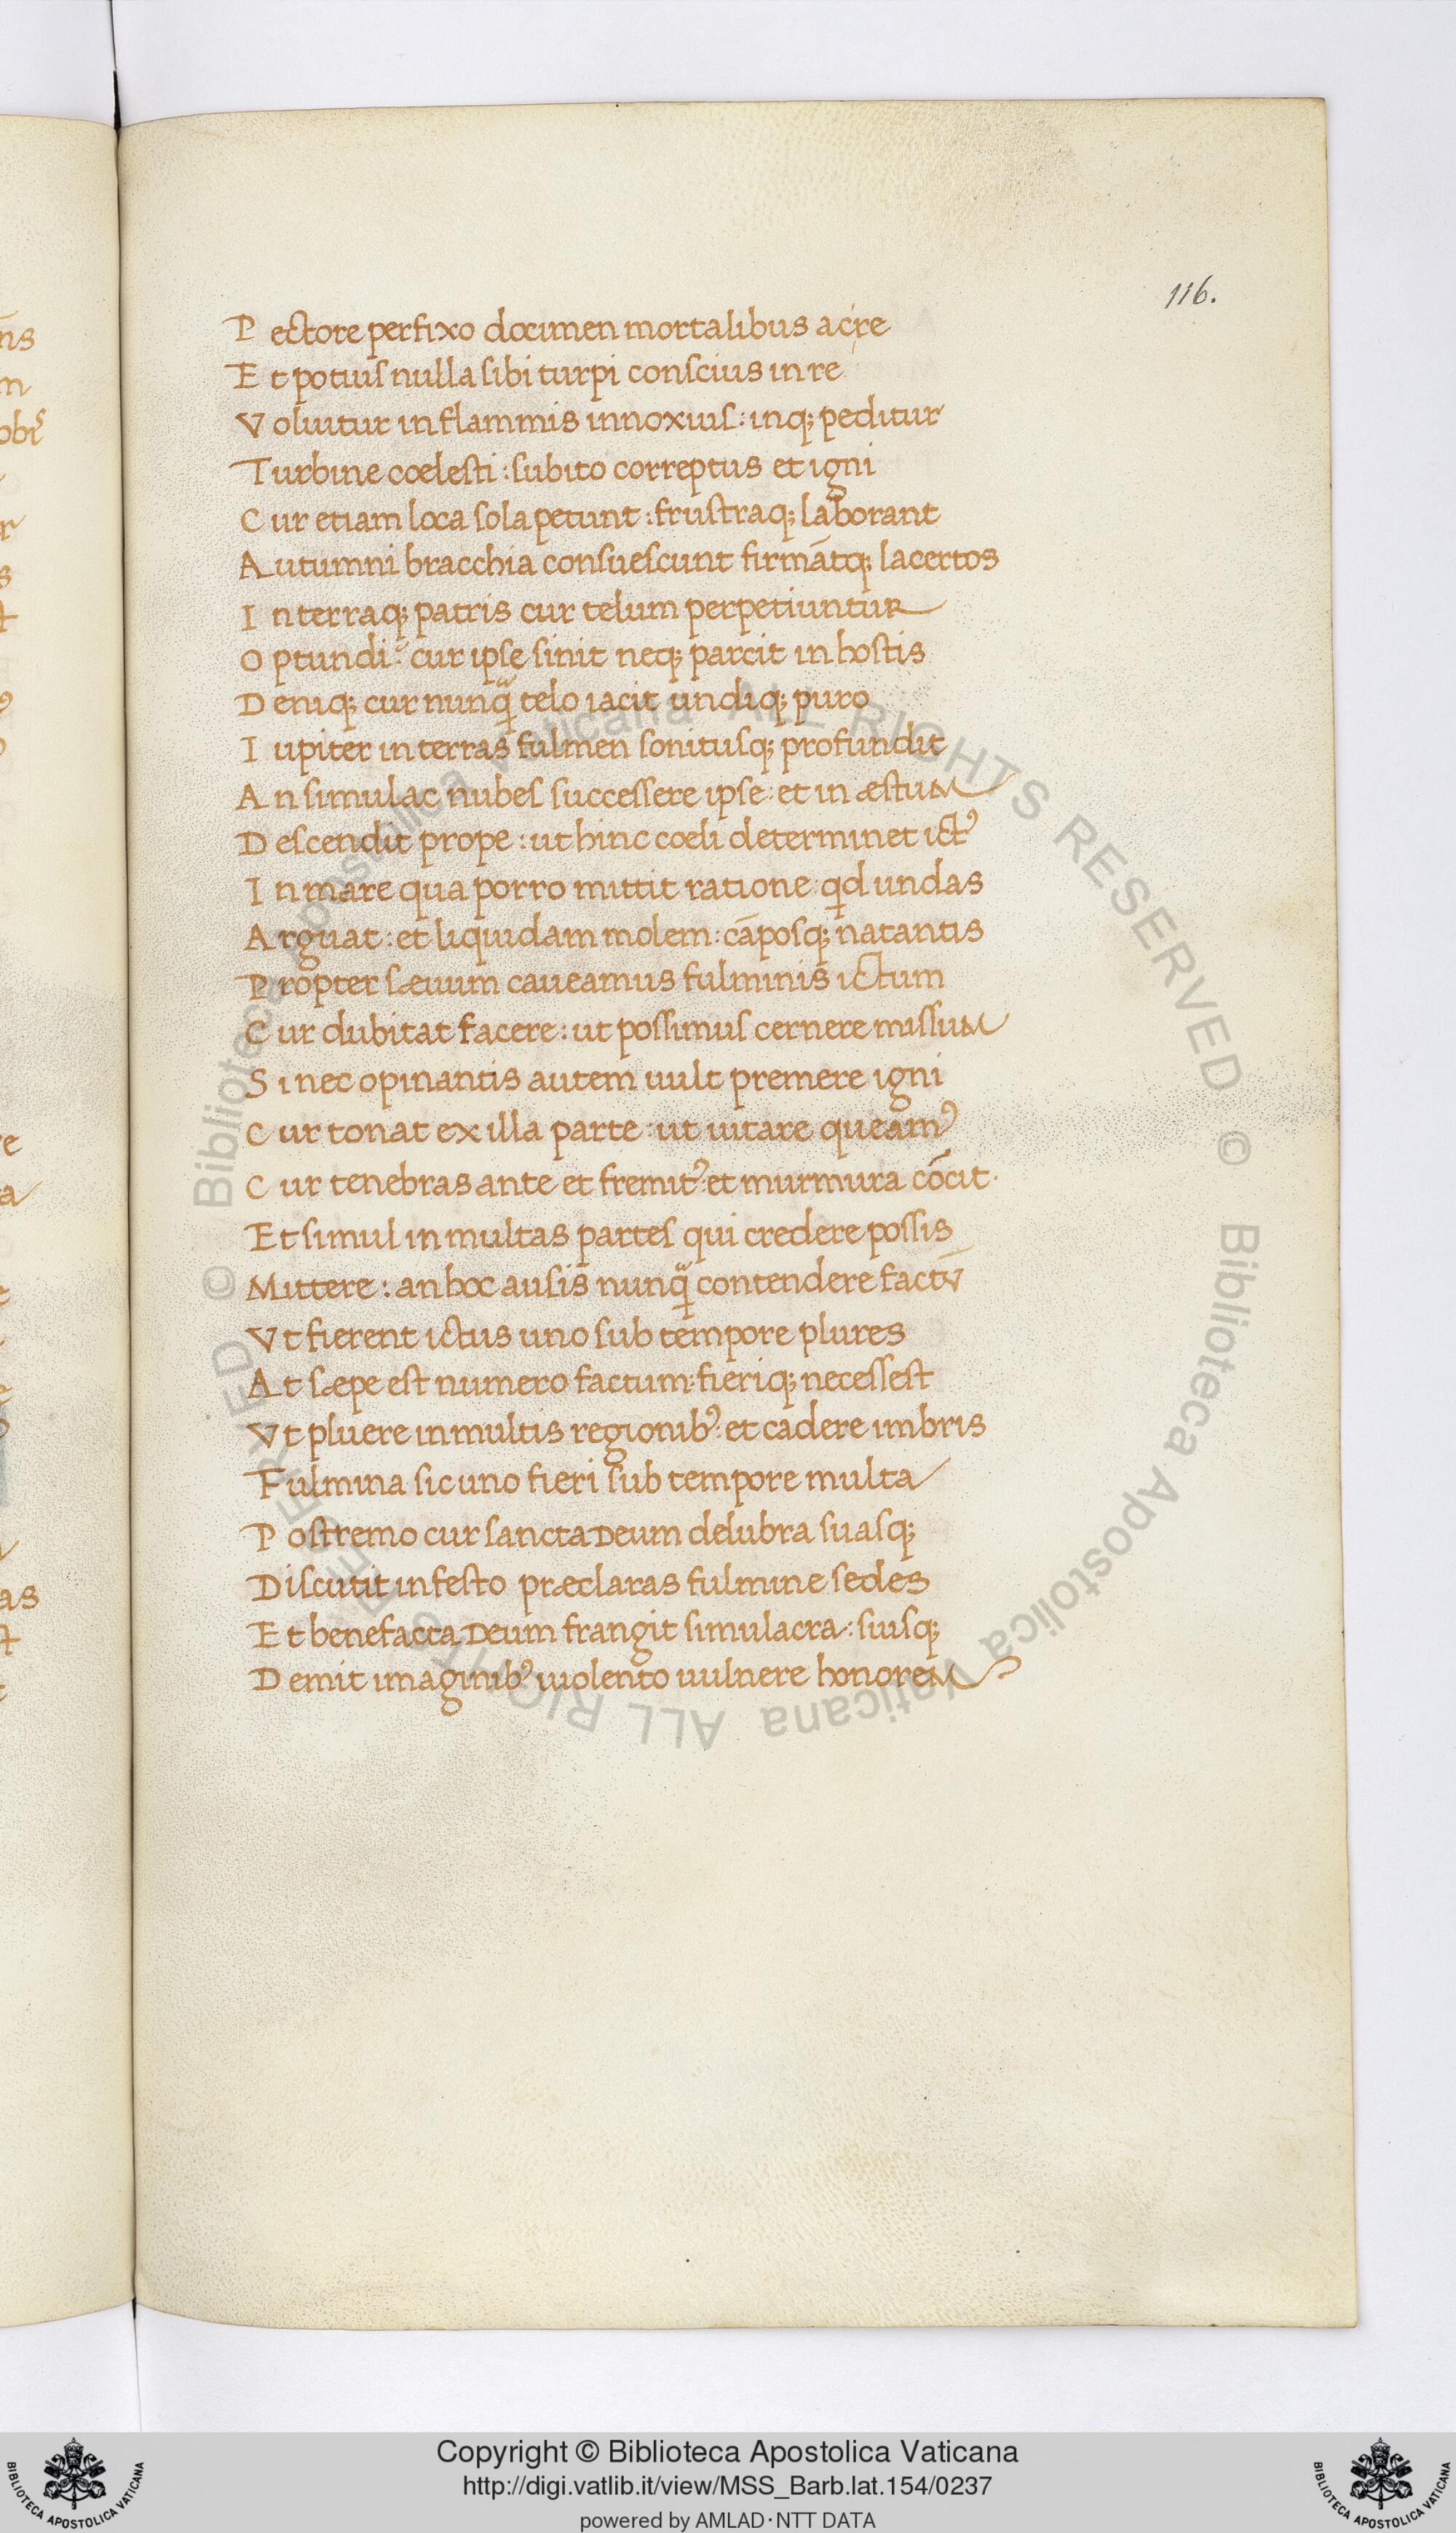 116.
ns
m
obis
r
s
t
re
ra
as
st
Pectore perfixo documen mortalibus acre
Et potius nulla sibi turpi conscius in re
Voluitur in flammis innoxius: inq; peditur
Turbine coelesti: subito correptus et igni
Cur etiam loca sola petunt: frustraq; laborant
Autumni bracchia consuescunt firmātq; lacertos
In terraq; patris cur telum perpetiuntur
Optundi: cur ipse sinit neq; parcit in hostis
Deniq; cur nunq̃ telo iacit undiq; puro
Iupiter in terras fulmen sonitusq; profundit
An simulac nubes successere ipse: et in æstum
Descendit prope: ut hinc coeli determinet ict⁹
In mare qua porro mittit ratione: qd undas
Arguat: et liquidam molem: cāposq; natantis
Propter sæuum caueamus fulminis ictum
Cur dubitat facere: ut possimus cernere missum
Si nec opinantis autem uult premere igni
Cur tonat ex illa parte: ut uitare queam⁹
Cur tenebras ante et fremit⁹: et murmura cōcit.
Et simul in multas partes qui credere possis
Mittere: an hoc ausis nunq̃ contendere factū
Vt fierent ictus uno sub tempore plures
At sæpe est numero factum: fieriq; necessest
Vt pluere in multis regionib⁹: et cadere imbris
Fulmina sic uno fieri sub tempore multa
Postremo cur sancta Deum delubra suasq;
Discutit infesto præclaras fulmine sedes
Et benefacta Deum frangit simulacra: suisq;
Demit imaginib⁹ uiolento uulnere honorem
© Biblioteca Apostolica Vaticana ALL RIGHTS RESERVED © Biblioteca Apostolica Vaticana ALL RIGHTS RESERVED
Copyright © Biblioteca Apostolica Vaticana
http://digi.vatlib.it/view/MSS_Barb.lat.154/0237
powered by AMLAD·NTT DATA
BIBLIOTECA APOSTOLICA VATICANA
BIBLIOTECA APOSTOLICA VATICANA